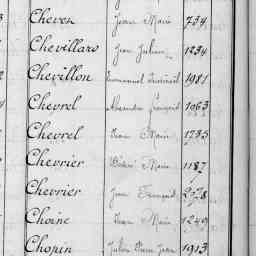 Cheves Jean Marie 734
Chevillard Jean Julien 1234
Chevillon Emmanuel 1981
Chevrel Alexandre François 1063
Chevrel Jean Marie 1735
Chevrier Marie 1187
Chevrier Jean François 2078
Choine Jean Marie 1249
Chopin Julien Pierre Jean 1913